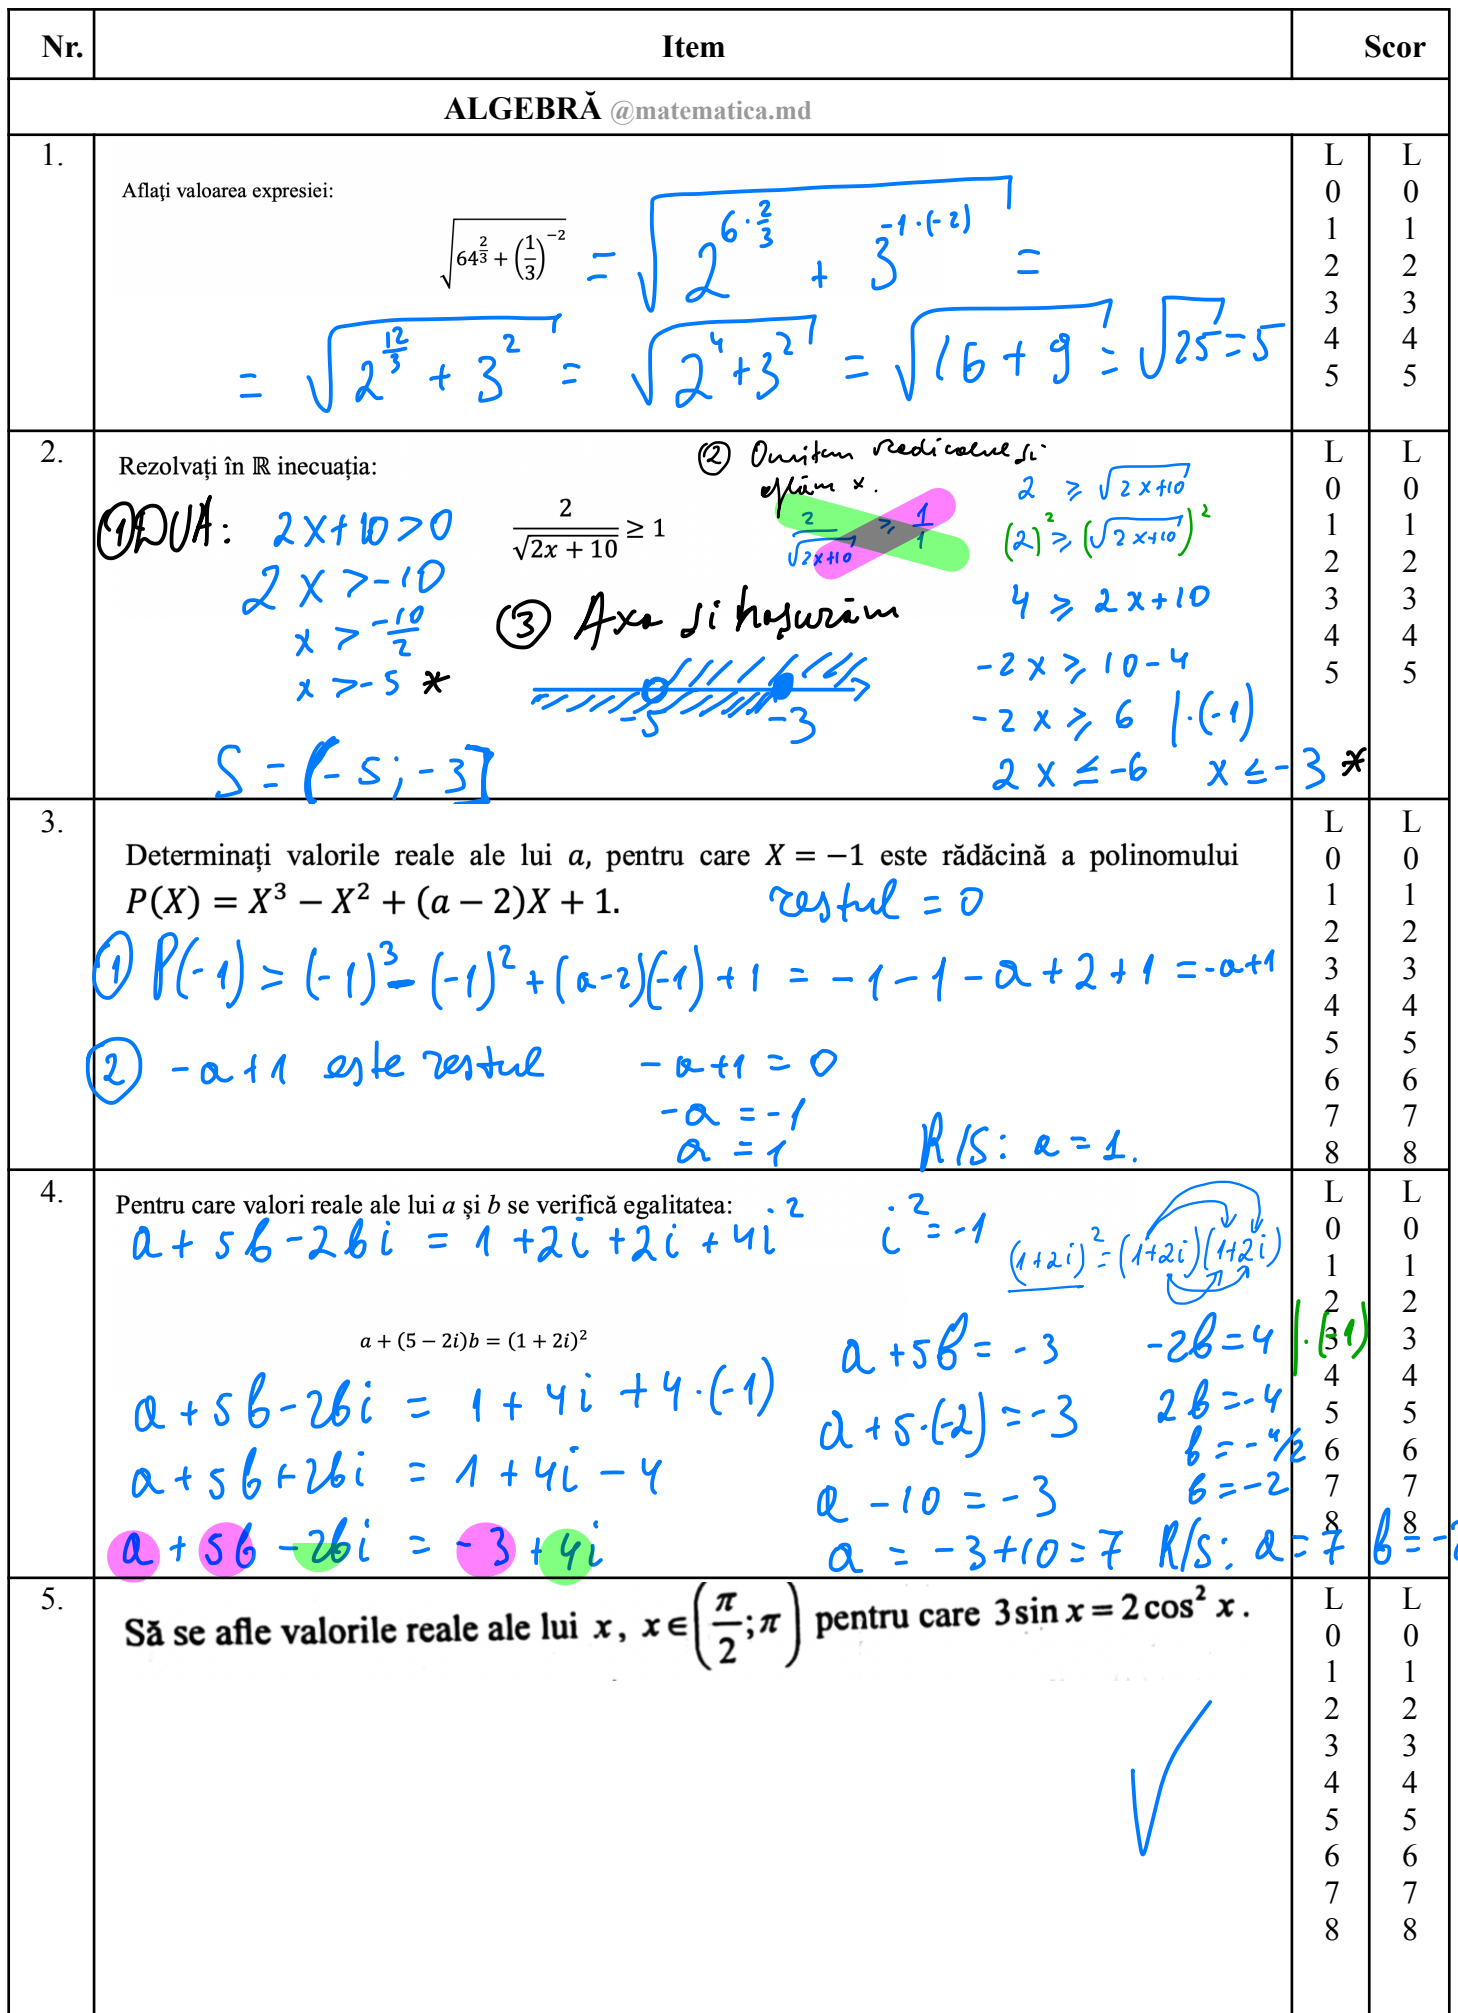 Nr. Item Scor
ALGEBRĂ @matematica.md
1.
Aflați valoarea expresiei:
√(64^(2/3) + (1/3)^(-2)) = √(2^(6·2/3) + 3^(-1·(-2))) =
= √(2^(12/3) + 3^2) = √(2^4 + 3^2) = √(16 + 9) = √25 = 5
L 0 1 2 3 4 5
L 0 1 2 3 4 5
2.
Rezolvați în ℝ inecuația:
2/√(2x + 10) ≥ 1
① DVA: 2x+10>0
2x>-10
x > -10/2
x>-5 *
② Omitem radicalul și
aflăm x.
2/√(2x+10) ≥ 1/1
2 ≥ √(2x+10)
(2)^2 ≥ (√(2x+10))^2
4 ≥ 2x+10
-2x ≥ 10-4
-2x ≥ 6 |·(-1)
2x ≤ -6 x ≤ -3 *
③ Axa și hașurăm
-5 -3
S = (-5; -3]
L 0 1 2 3 4 5
L 0 1 2 3 4 5
3.
Determinați valorile reale ale lui a, pentru care X = −1 este rădăcină a polinomului
P(X) = X³ − X² + (a − 2)X + 1.
restul = 0
① P(-1) = (-1)^3 - (-1)^2 + (a-2)(-1) + 1 = -1-1-a+2+1 = -a+1
② -a+1 este restul -a+1 = 0
-a = -1
a = 1 R/S: a = 1.
L 0 1 2 3 4 5 6 7 8
L 0 1 2 3 4 5 6 7 8
4.
Pentru care valori reale ale lui a și b se verifică egalitatea:
a+5b-2bi = 1+2i+2i+4i^2 i^2=-1
(1+2i)^2=(1+2i)(1+2i)
a + (5 − 2i)b = (1 + 2i)²
a+5b-2bi = 1+4i+4·(-1)
a+5b+2bi = 1+4i-4
a+5b-2bi = -3+4i
a+5b=-3
a+5·(-2)=-3
a-10=-3
a = -3+10=7
-2b=4 |·(-1)
2b=-4
b=-4/2
b=-2
R/S: a=7 b=-2
L 0 1 2 3 4 5 6 7 8
L 0 1 2 3 4 5 6 7 8
5.
Să se afle valorile reale ale lui x, x∈(π/2;π) pentru care 3 sin x = 2 cos² x.
L 0 1 2 3 4 5 6 7 8
L 0 1 2 3 4 5 6 7 8